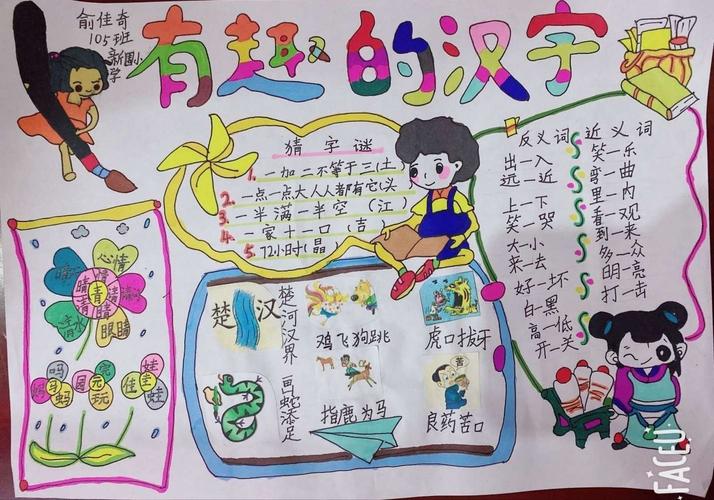 俞佳奇
105班
新国小
学
有趣的汉字
猜字谜
1. 一加二不等于三(土)
2. 一点一点大人人都有它(头
3. 一半满一半空(江)
4. 一家十一口(吉
5. 72小时(晶
反义词
出—入
远—近
上—下
笑—哭
大—小
来—去
好—坏
白—黑
高—低
开—关
近义词
笑—乐
弯—曲
里—内
看—观
到—来
多—众
明—亮
打—击
心情
晴
情
清
青
睛
清水
眼睛
吗
妈
蚂
园
完
元
玩
娃
佳
圭
蛙
楚 汉
楚河汉界
画蛇添足
鸡飞狗跳
虎口拔牙
指鹿为马
良药苦口
黄
FACEU